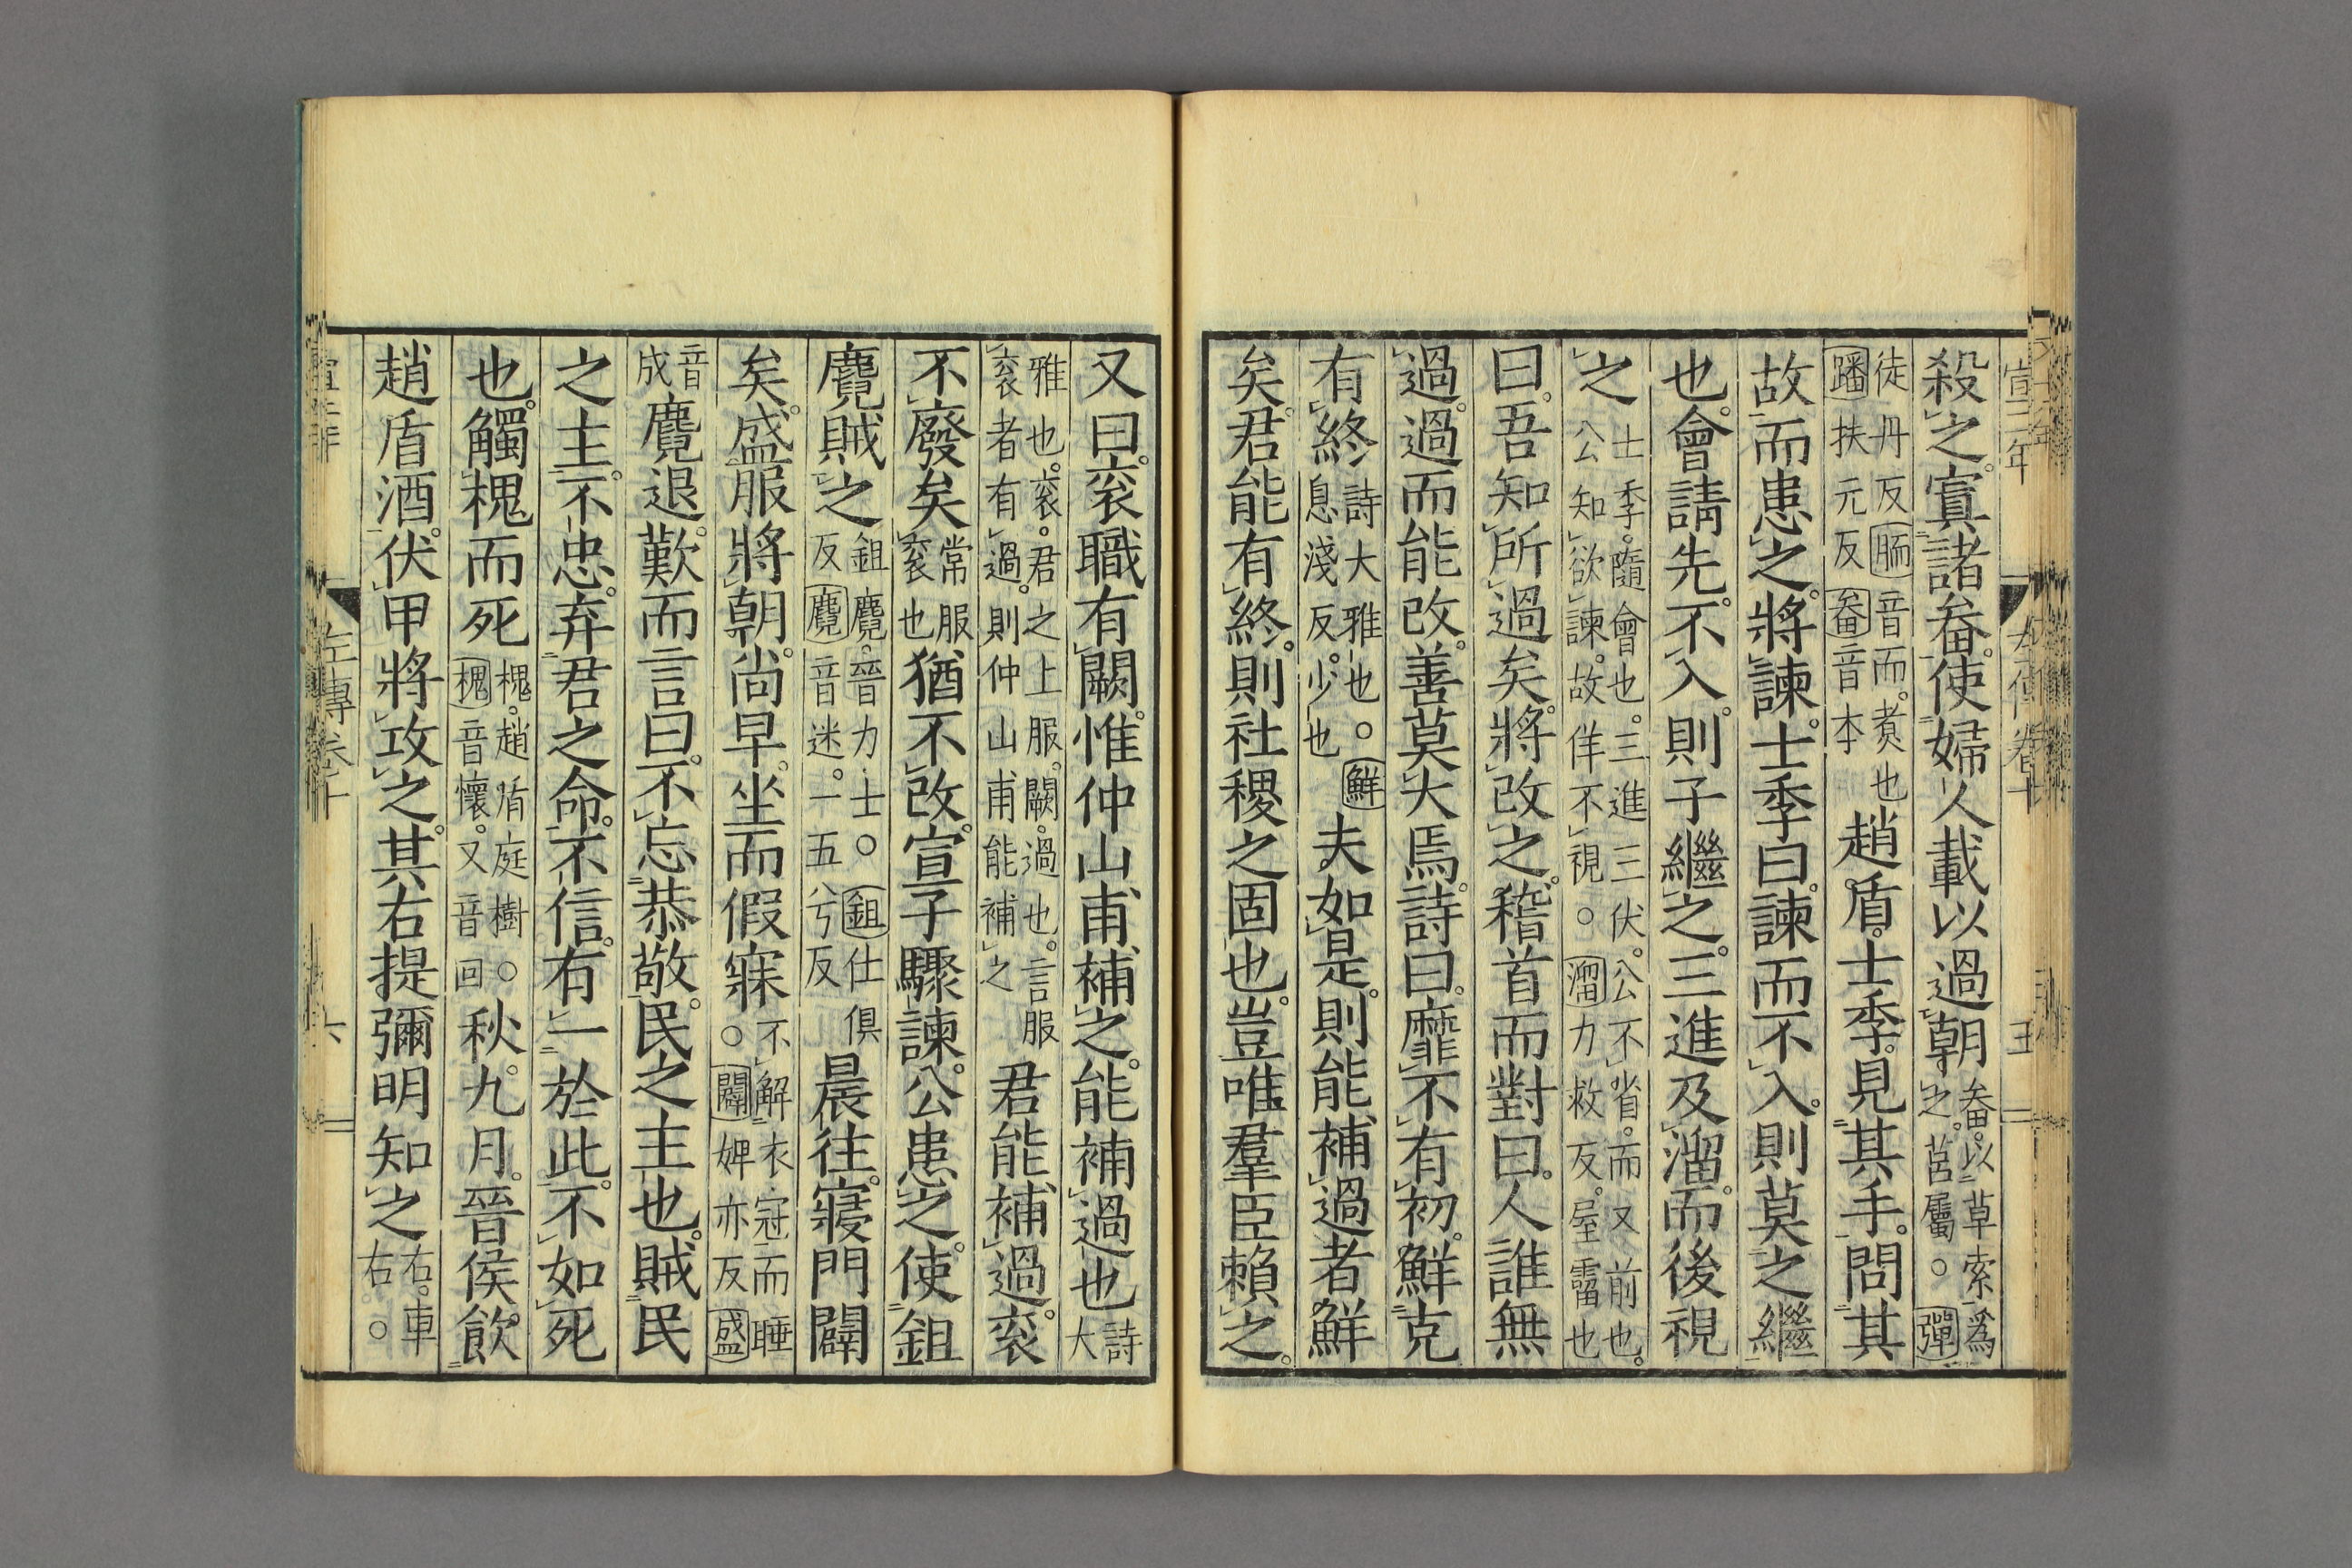 殺之。寘諸畚。使婦人載以過朝畚。以草索爲之。筥屬。○彈
徒丹反胹音而。煮也蹯扶元反畚音本趙盾。士季。見其手。問其
故。而患之。將諫。士季曰。諫而不入。則莫之繼
也。會請先。不入。則子繼之。三進及溜。而後視
之士季。隨會也。三進三伏。公不省。而又前也。公知欲諫。故佯不視。○溜力救反。屋霤也
曰。吾知所過矣。將改之。稽首而對曰。人誰無
過。過而能改。善莫大焉。詩曰。靡不有初。鮮克
有終詩大雅也。○鮮息淺反。少也夫如是。則能補過者鮮
矣。君能有終。則社稷之固也。豈唯羣臣賴之。
又曰。袞職有闕。惟仲山甫補之。能補過也詩大
雅也。袞。君之上服。闕。過也。言服袞者有過。則仲山甫能補之君能補過。袞
不廢矣常服袞也猶不改。宣子驟諫。公患之。使鉏
麑賊之鉏麑。晉力士。○鉏仕俱反麑音迷。一五兮反晨往。寢門闢
矣。盛服將朝。尚早。坐而假寐不解衣冠而睡○闢婢亦反盛
音成麑退。歎而言曰。不忘恭敬。民之主也。賊民
之主。不忠。弃君之命。不信。有一於此。不如死
也。觸槐而死槐。趙盾庭樹○槐音懷。又音回秋。九月。晉侯。飲
趙盾酒。伏甲將攻之。其右提彌明知之右。車右。○
宣二年
左傳卷十
左傳卷十
六